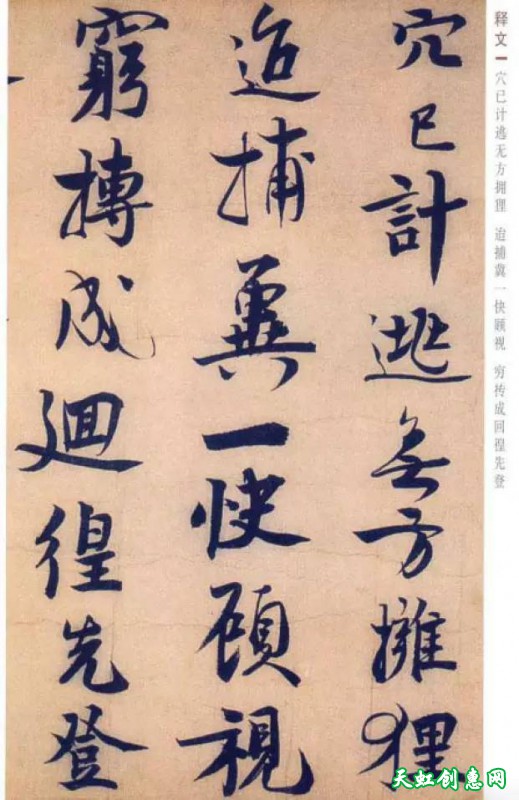 穴已計逃無方擁狸
迨捕冀一快顧視
窮搏成迴徨先登
释文一 穴已计逃无方拥狸 迨捕冀一快顾视 穷抟成回徨先登
天虹创惠网